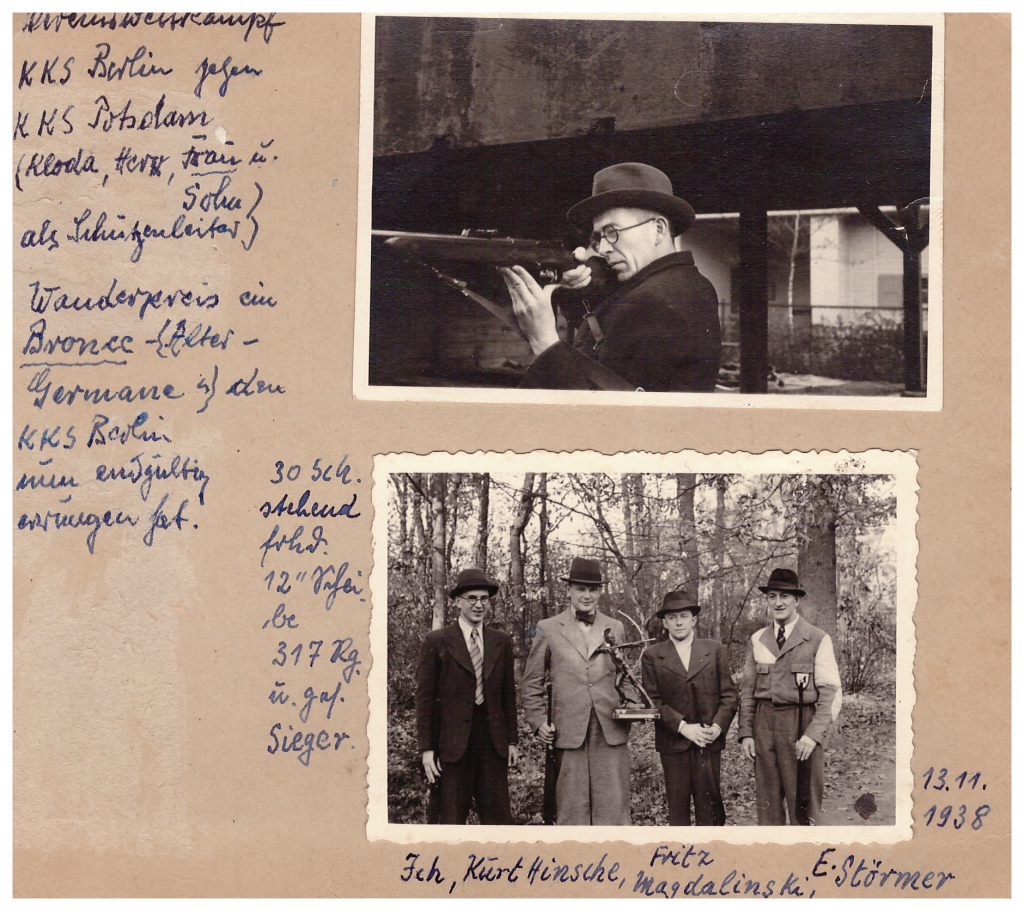 Vereinswettkampf
KKS Berlin gegen
KKS Potsdam
(Kloda, Herr, Frau u.
Sohn)
als Schützenleiter)
Wanderpreis ein
Bronce - (Alter -
Germane) den
KKS Berlin
nun endgültig
errungen hat.
30 Sch.
stehend
frhd.
12" Schei-
be
317 Rg.
u. ges.
Sieger.
13.11.
1938
Ich, Kurt Hinsche, Fritz
Magdalinski, E. Störmer